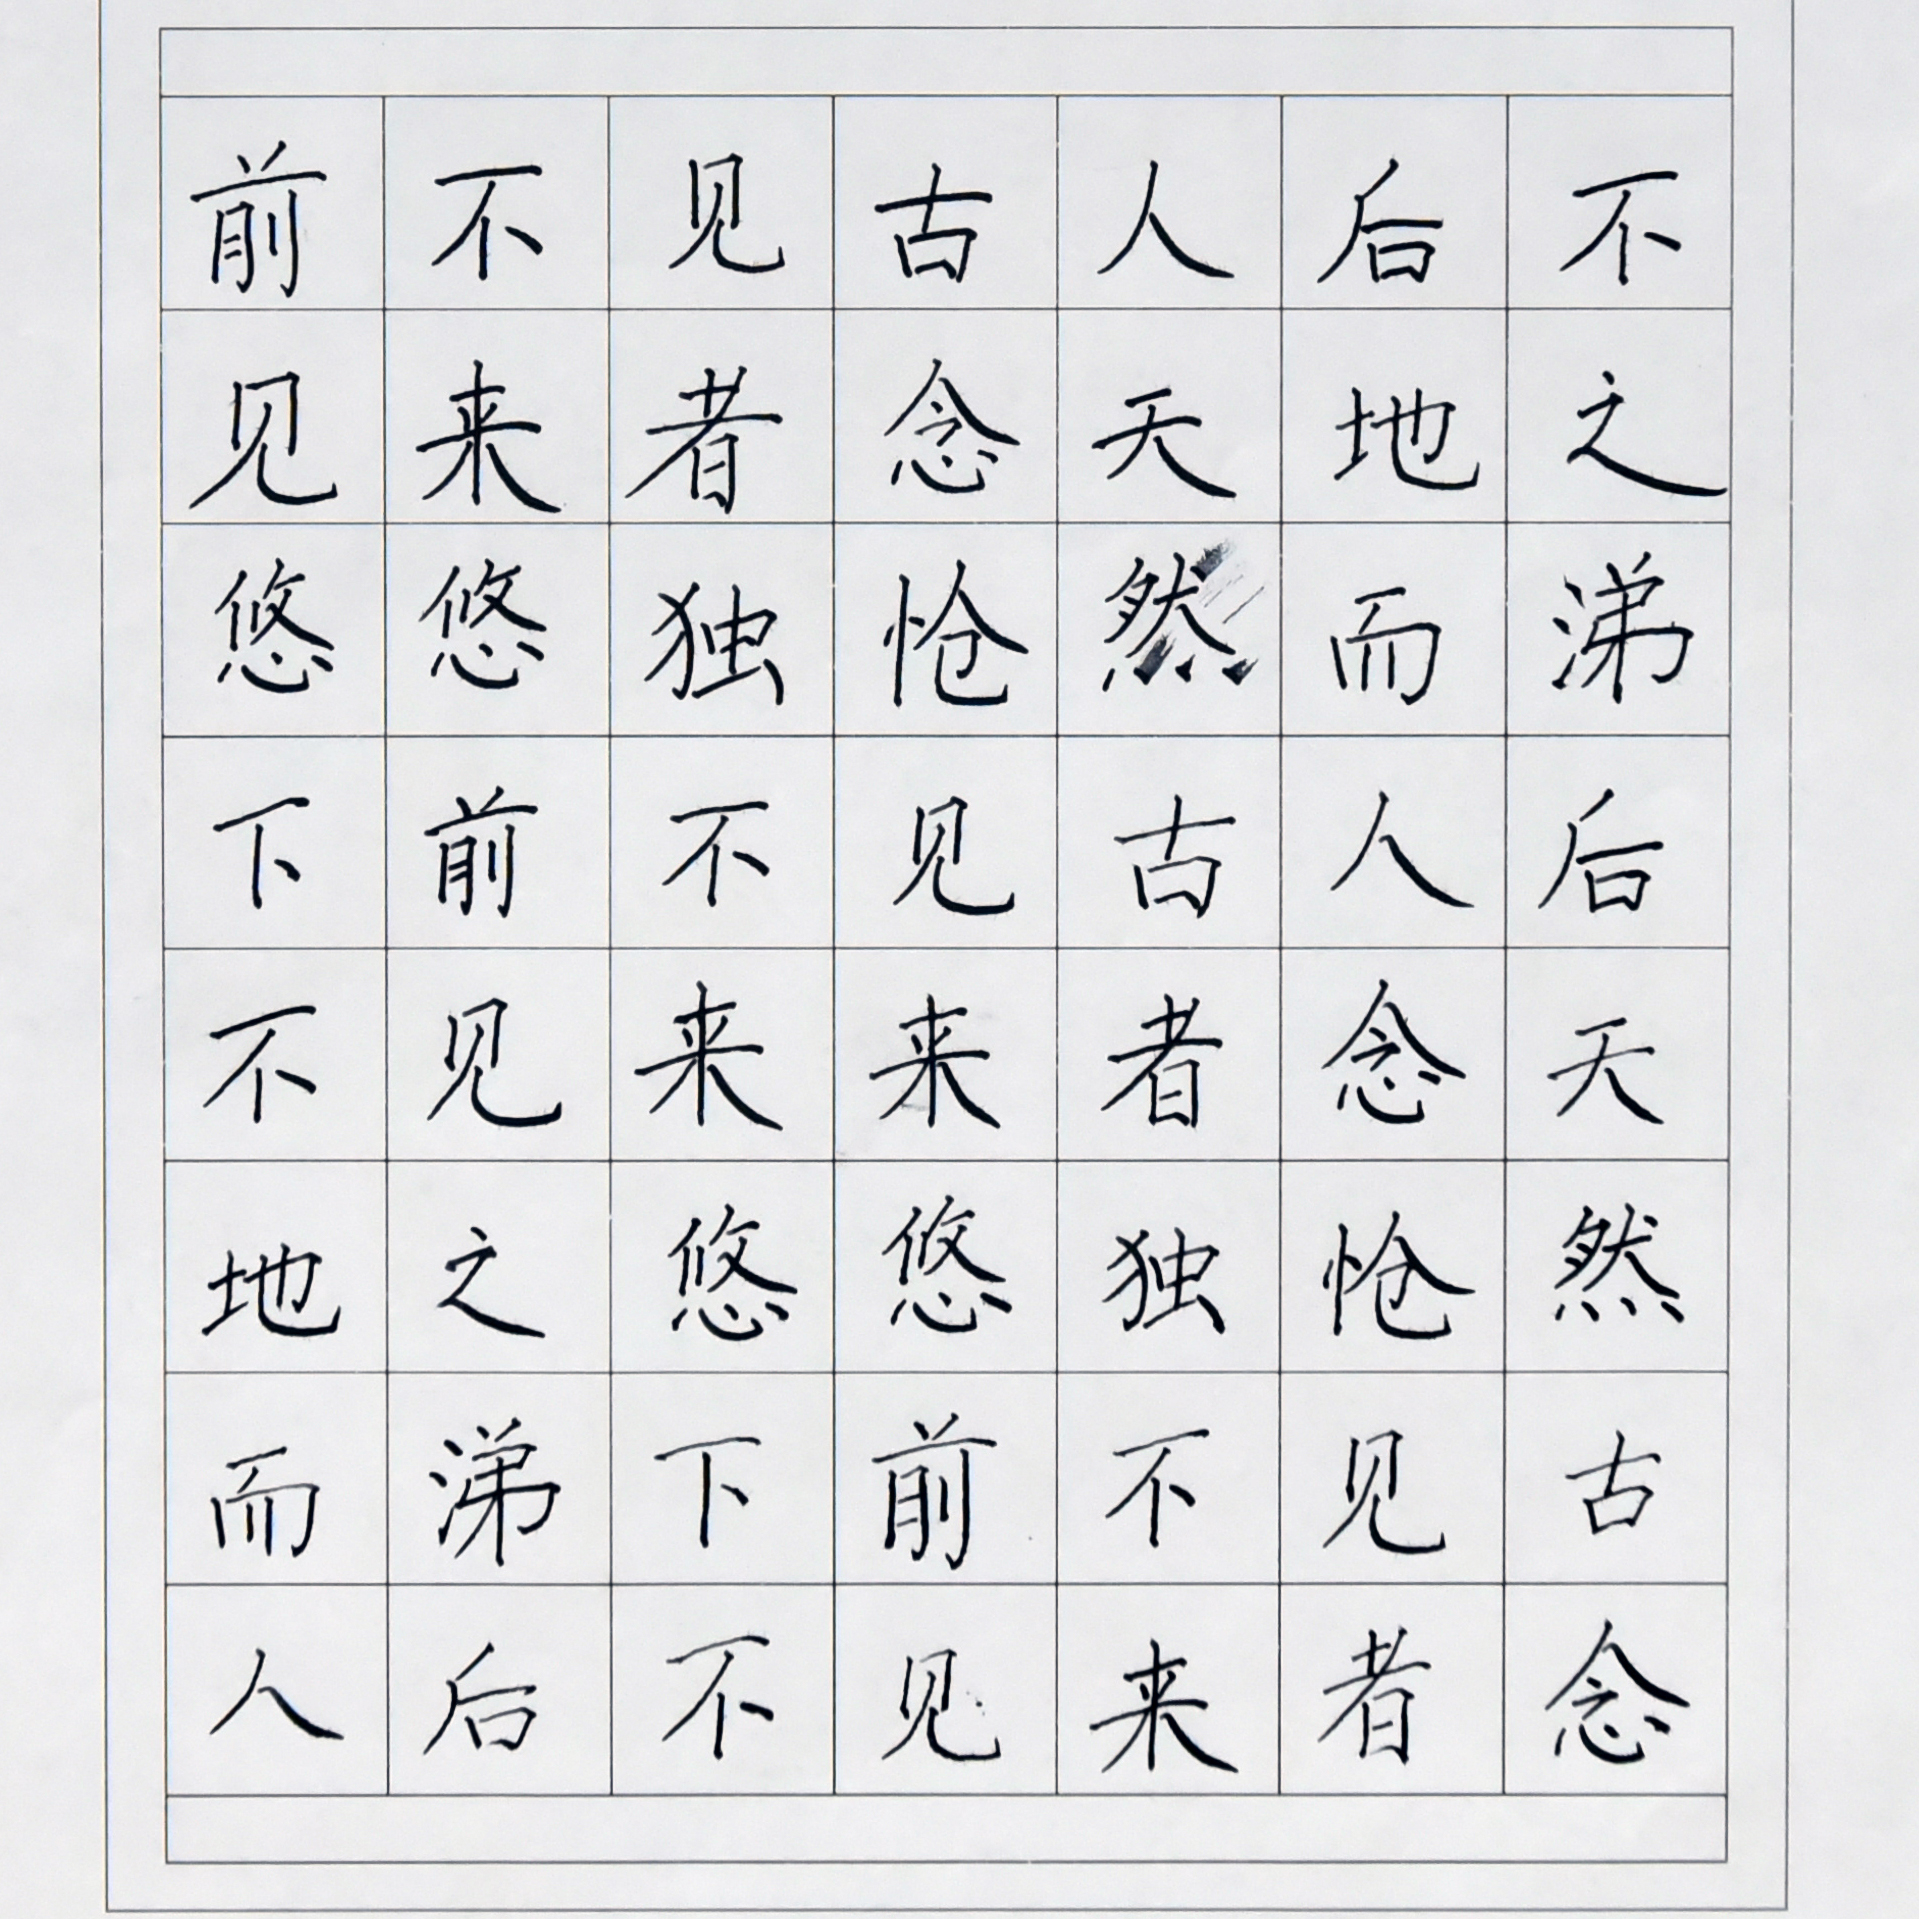 前不见古人后不
见来者念天地之
悠悠独怆然而涕
下前不见古人后
不见来来者念天
地之悠悠独怆然
而涕下前不见古
人后不见来者念